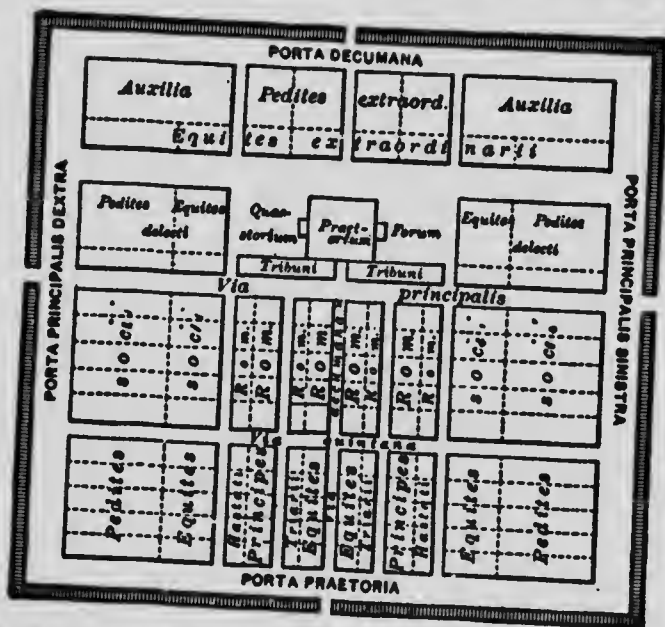 PORTA DECUMANA
Auxilia
Pedites
extraord.
Auxilia
Equi tes ex traordi narii
PORTA PRINCIPALIS DEXTRA
PORTA PRINCIPALIS SINISTRA
Pedites Equites
delecti
Quae-
storium
Praet-
orium
Forum
Equites Pedites
delecti
Tribuni
Tribuni
Via principalis
Rom.
Rom.
Rom.
Rom.
Rom.
Rom.
Rom.
Rom.
Via quintana
Pedites
Equites
Hastati
Principes
Triarii
Equites
Via
Equites
Triarii
Principes
Hastati
Equites
Pedites
PORTA PRAETORIA